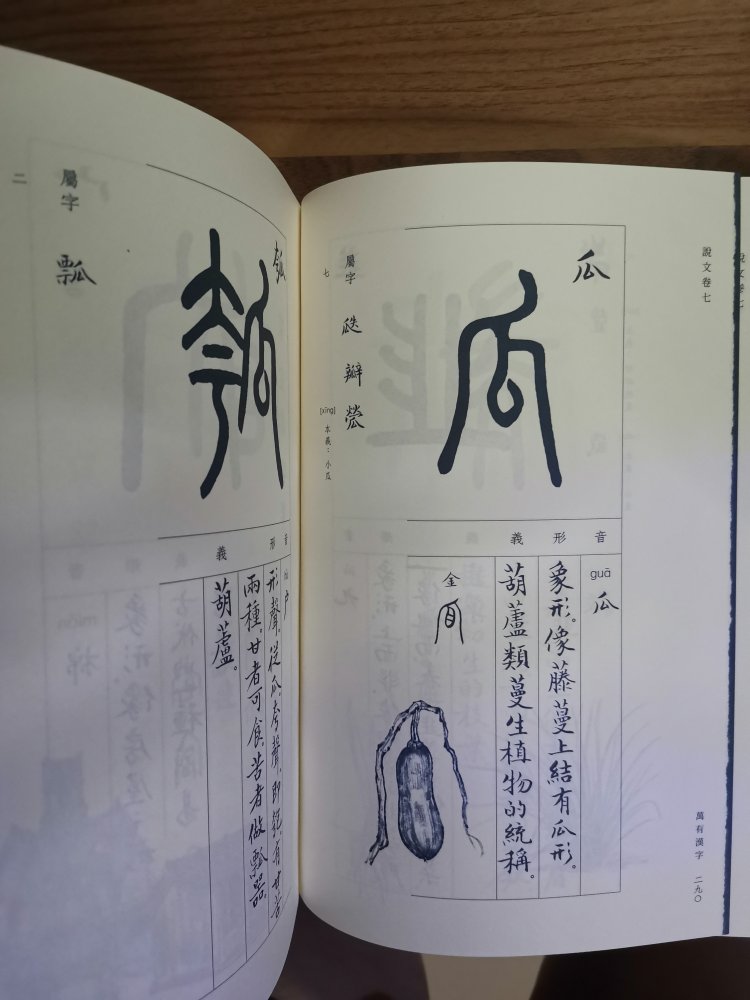 說文卷七
說文卷七
萬有漢字 二九〇
瓜
瓜
屬字 瓞 瓣
七
[xíng] 本義：小瓜
音
形
義
guā 瓜
象形。像藤蔓上結有瓜形。
葫蘆類蔓生植物的統稱。
金
瓠
瓠
屬字 瓢
二
音
形
義
hù 户
形聲。從瓜，夸聲。即匏。有甘苦
兩種。甘者可食，苦者做瓢器。
葫蘆。